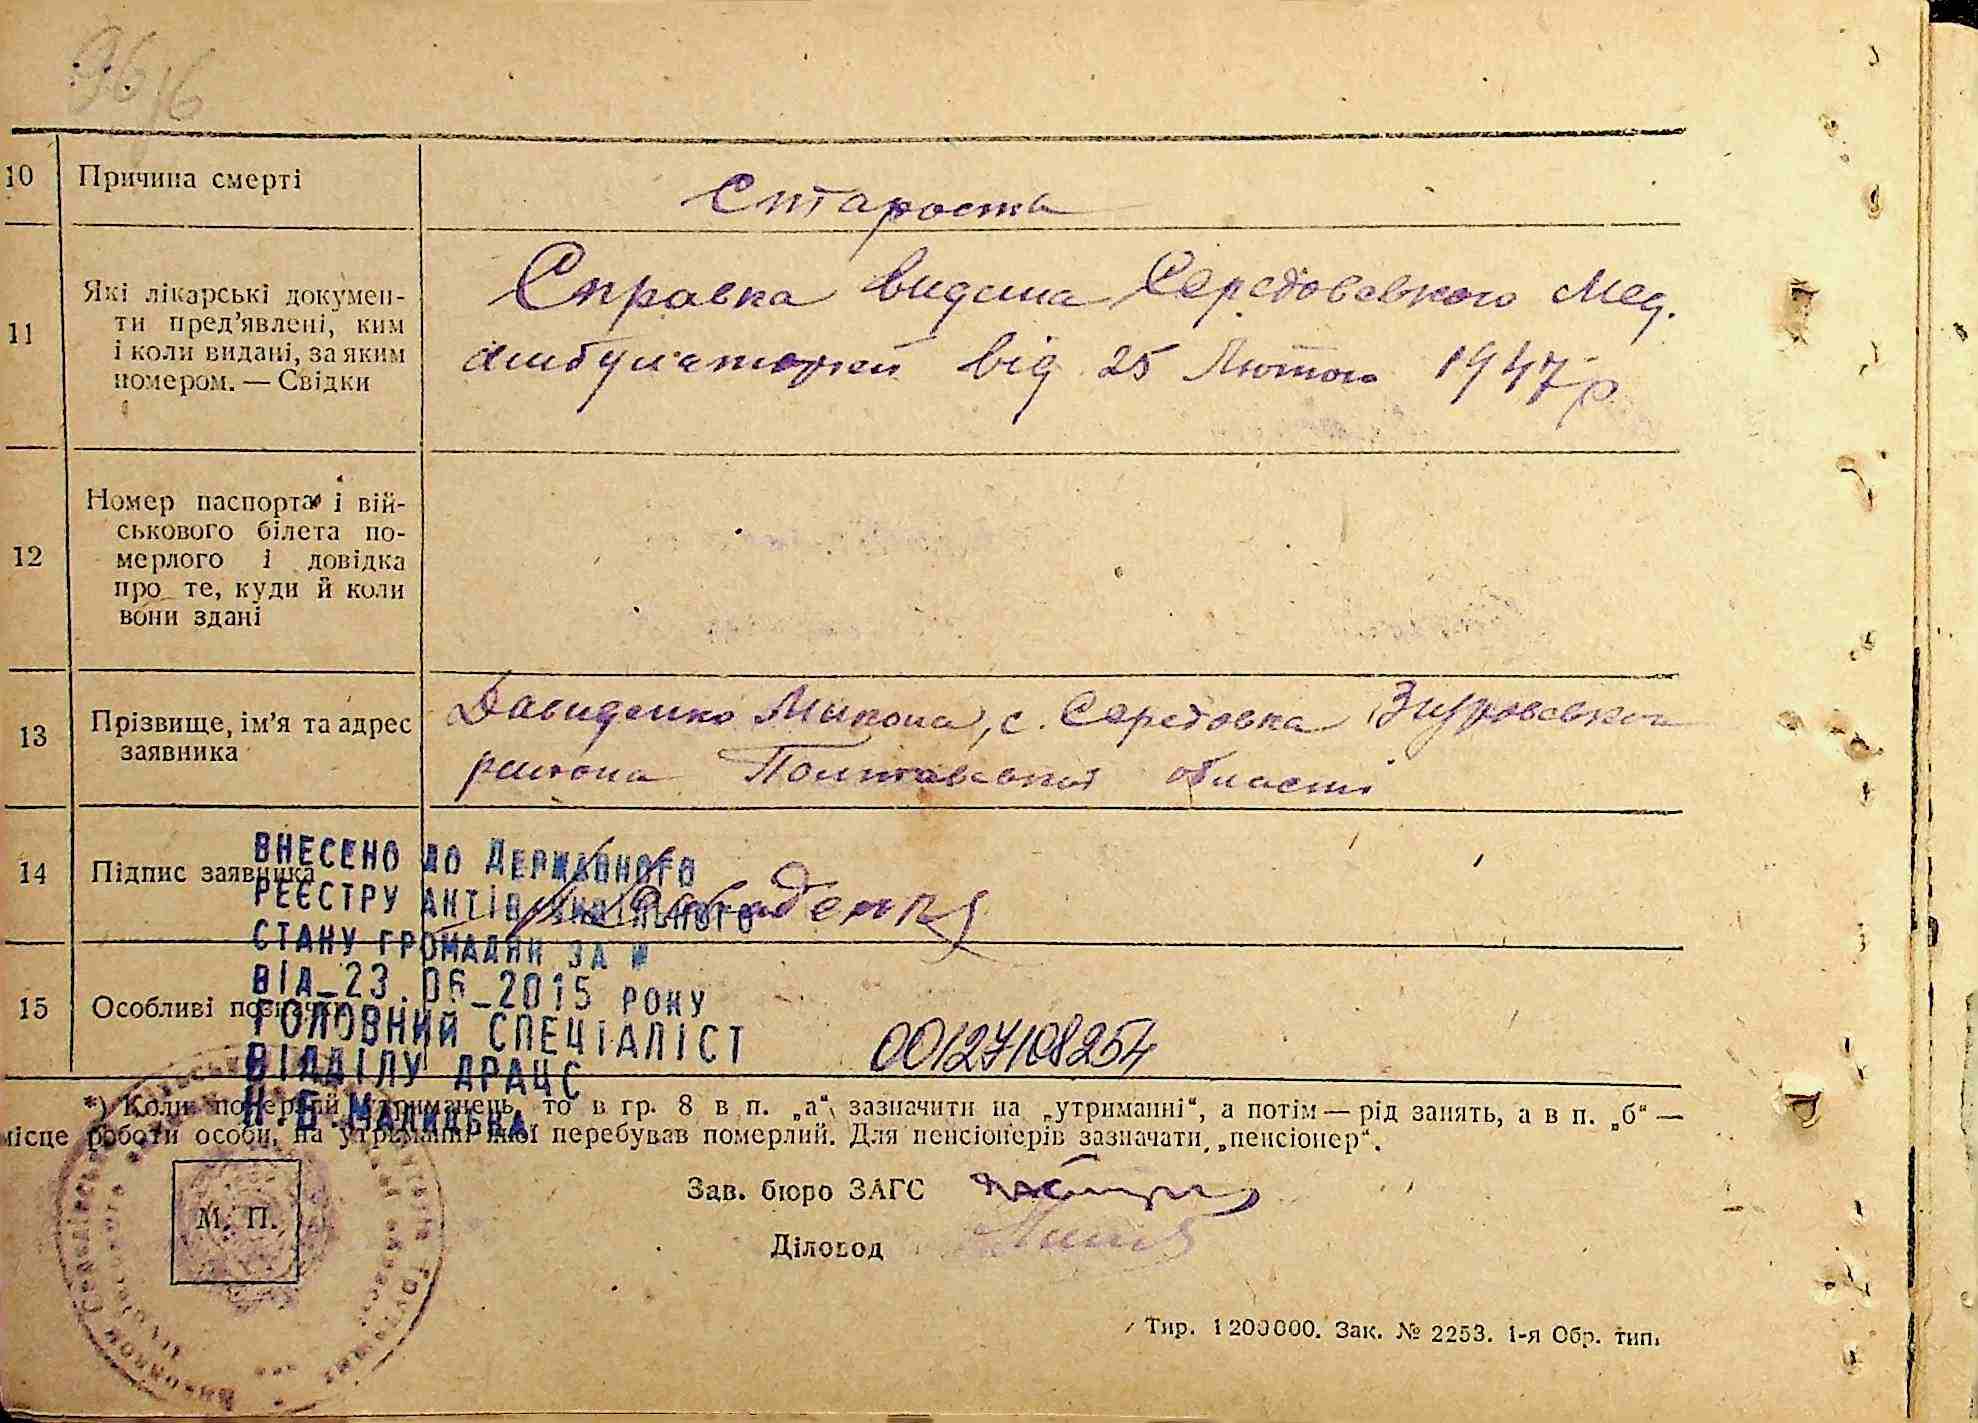 10 Причина смерті
Старость
11 Які лікарські докумен-
ти пред'явлені, ким
і коли видані, за яким
номером. — Свідки
Справка видана Середовського Мед.
амбулаторией від 25 Лютого 1947 р
12 Номер паспорта і вій-
ськового білета по-
мерлого і довідка
про те, куди й коли
вони здані
13 Прізвище, ім'я та адрес
заявника
Давиденко Микола, с. Середовка Згуровського
района Полтавської області
14 Підпис заявника
Давиденко
15 Особливі позначки
ВНЕСЕНО ДО ДЕРЖАВНОГО
РЕЄСТРУ АКТІВ ЦИВІЛЬНОГО
СТАНУ ГРОМАДЯН ЗА №
ВІД_23.06_2015 РОКУ
ГОЛОВНИЙ СПЕЦІАЛІСТ
ВІДДІЛУ ДРАЦС
00127108254
*) Коли померлий утриманець, то в гр. 8 в п. „а“ зазначити на „утриманні“, а потім — рід занять, а в п. „б“ —
місце роботи особи, на утриманні якої перебував померлий. Для пенсіонерів зазначати „пенсіонер“.
Зав. бюро ЗАГС
М. П.
Діловод
Тир. 1200000. Зак. № 2253. 1-я Обр. тип.